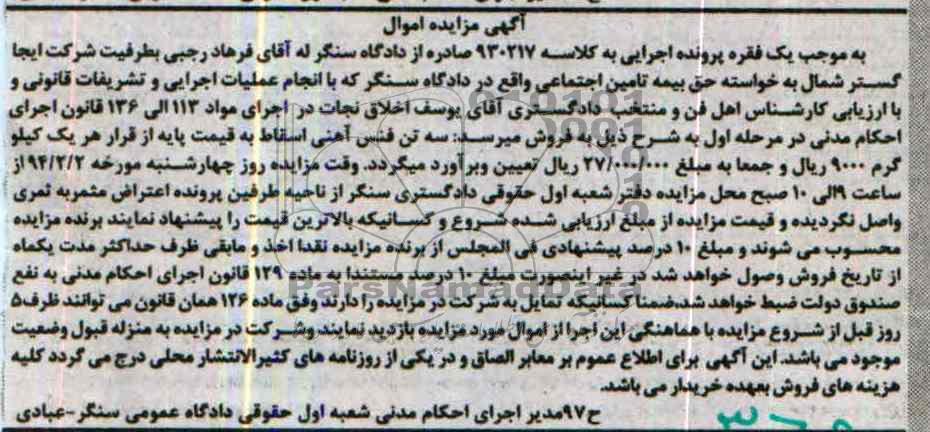 آگهی مزایده اموال
به موجب یک فقره پرونده اجرایی به کلاسه ۹۳۰۲۱۷ صادره از دادگاه سنگر له آقای فرهاد رجبی بطرفیت شرکت ایجا
گستر شمال به خواسته حق بیمه تامین اجتماعی واقع در دادگاه سنگر که با انجام عملیات اجرایی و تشریفات قانونی و
با ارزیابی کارشناس اهل فن و منتخب دادگستری آقای یوسف اخلاق نجات در اجرای مواد ۱۱۳ الی ۱۳۶ قانون اجرای
احکام مدنی در مرحله اول به شرح ذیل به فروش میرسد: سه تن قفس آهنی اسقاط به قیمت پایه از قرار هر یک کیلو
گرم ۹۰۰۰ ریال و جمعا به مبلغ ۲۷/۰۰۰/۰۰۰ ریال تعیین وبرآورد میگردد. وقت مزایده روز چهارشنبه مورخه ۹۴/۲/۲ از
ساعت ۹الی ۱۰ صبح محل مزایده دفتر شعبه اول حقوقی دادگستری سنگر از ناحیه طرفین پرونده اعتراض مثمربه ثمری
واصل نگردیده و قیمت مزایده از مبلغ ارزیابی شده شروع و کسانیکه بالاترین قیمت را پیشنهاد نمایند برنده مزایده
محسوب می شوند و مبلغ ۱۰ درصد پیشنهادی فی المجلس از برنده مزایده نقدا اخذ و مابقی ظرف حداکثر مدت یکماه
از تاریخ فروش وصول خواهد شد در غیر اینصورت مبلغ ۱۰ درصد مستندا به ماده ۱۲۹ قانون اجرای احکام مدنی به نفع
صندوق دولت ضبط خواهد شد،ضمنا کسانیکه تمایل به شرکت در مزایده را دارند وفق ماده ۱۲۶ همان قانون می توانند ظرف۵
روز قبل از شروع مزایده با هماهنگی این اجرا از اموال مورد مزایده بازدید نمایند وشرکت در مزایده به منزله قبول وضعیت
موجود می باشد. این آگهی برای اطلاع عموم بر معابر الصاق و در یکی از روزنامه های کثیرالانتشار محلی درج می گردد کلیه
هزینه های فروش بعهده خریدار می باشد.
ح۹۷مدیر اجرای احکام مدنی شعبه اول حقوقی دادگاه عمومی سنگر-عبادی
ParsNamadData